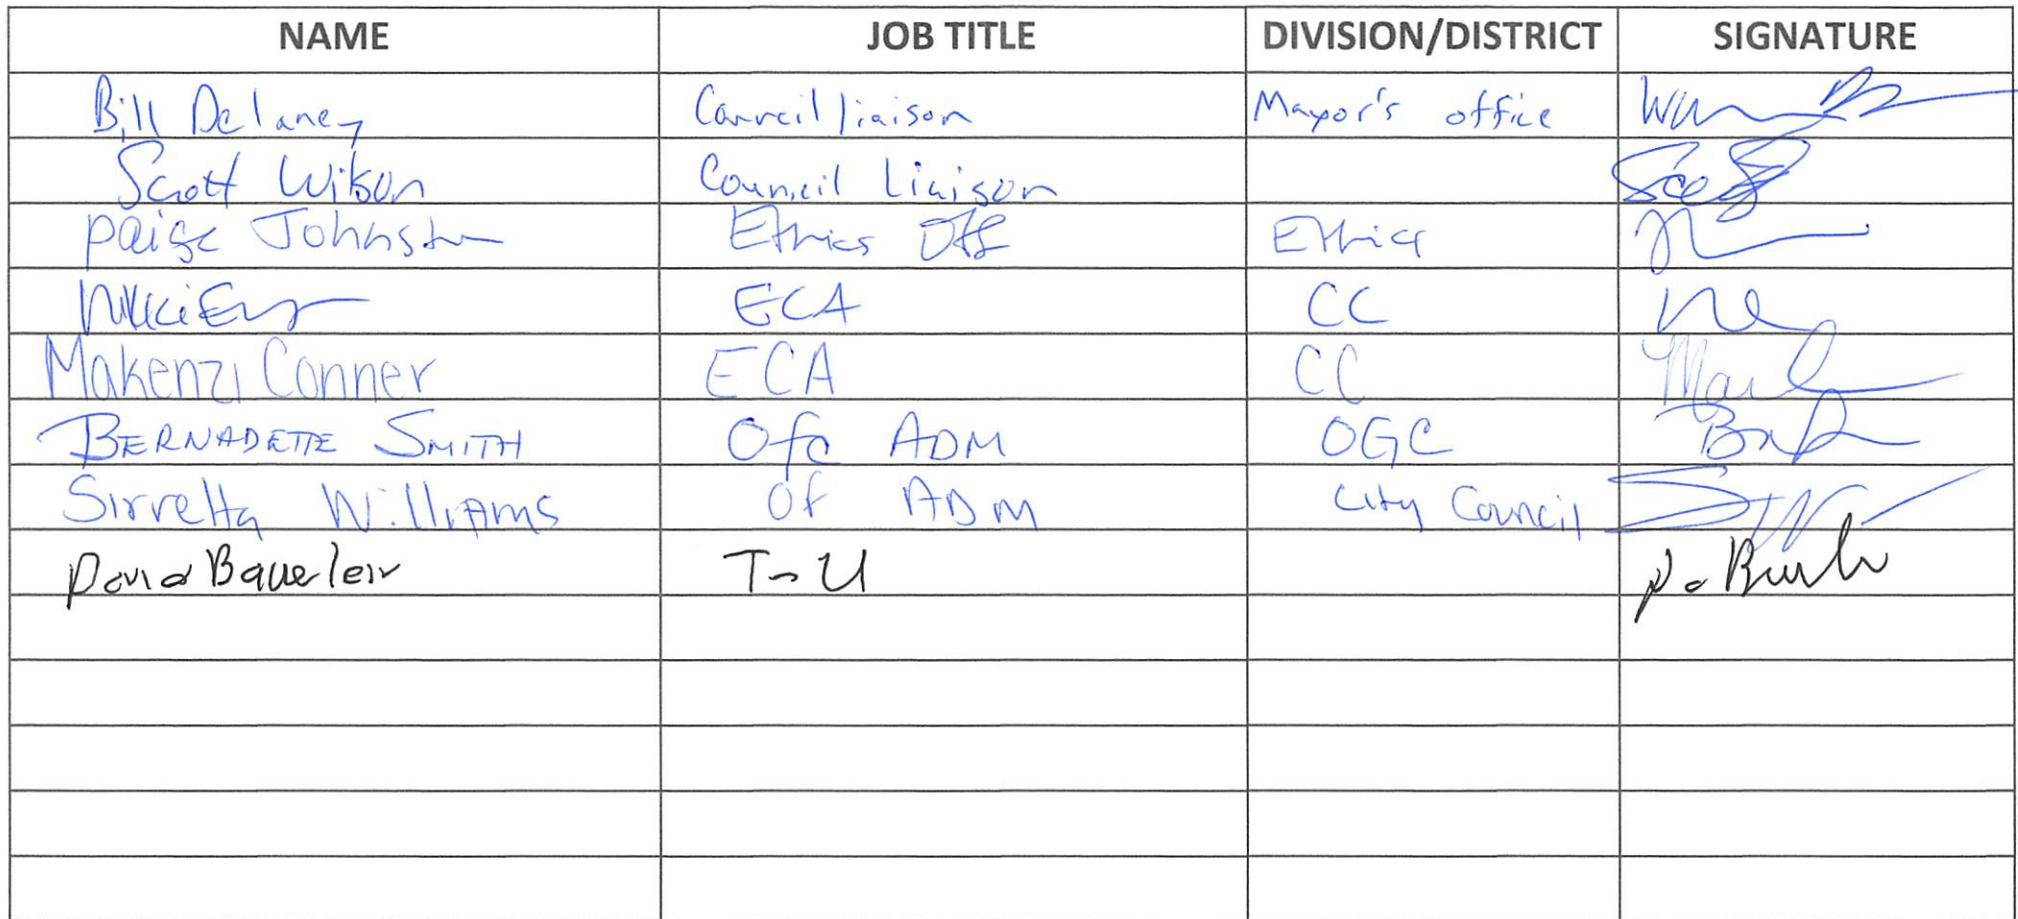 NAME JOB TITLE DIVISION/DISTRICT SIGNATURE
Bill Delaney Council liaison Mayor's office
Scott Wilson Council Liaison
Paige Johnston Ethics Off Ethics
Nikki ECA CC
Makenzi Conner ECA CC
BERNADETTE SMITH Ofc ADM OGC
Sirretta Williams Of ADM City Council
David Bauerlein T-U